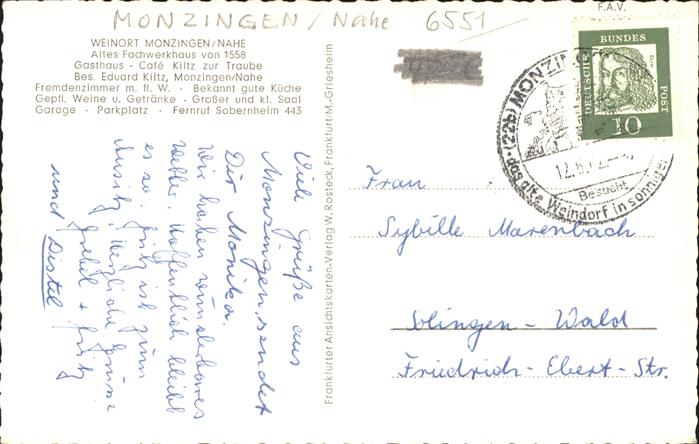 MONZINGEN/Nahe 6551
F.A.V.
WEINORT MONZINGEN/NAHE
Altes Fachwerkhaus von 1558
Gasthaus - Café Kiltz zur Traube
Bes. Eduard Kiltz, Monzingen/Nahe
Fremdenzimmer m. fl. W. · Bekannt gute Küche
Gepfl. Weine u. Getränke · Großer und kl. Saal
Garage · Parkplatz · Fernruf Sobernheim 443
Viele Grüße aus
Monzingen sendet
Dir Monika.
Wir haben wunderbares
Wetter. Hoffentlich bleibt
es so. Fritz ist zum
Herzliche Grüße
+ Fritz
und Distel
Frankfurter Ansichtskarten-Verlag W. Rosteck, Frankfurt/M.-Griesheim
DEUTSCHE BUNDES POST
10
(22b) MONZINGEN
12.6.
Besucht
das alte Weindorf in sonniger
Frau
Sybille Marenbach
Solingen - Wald
Friedrich-Ebert-Str.